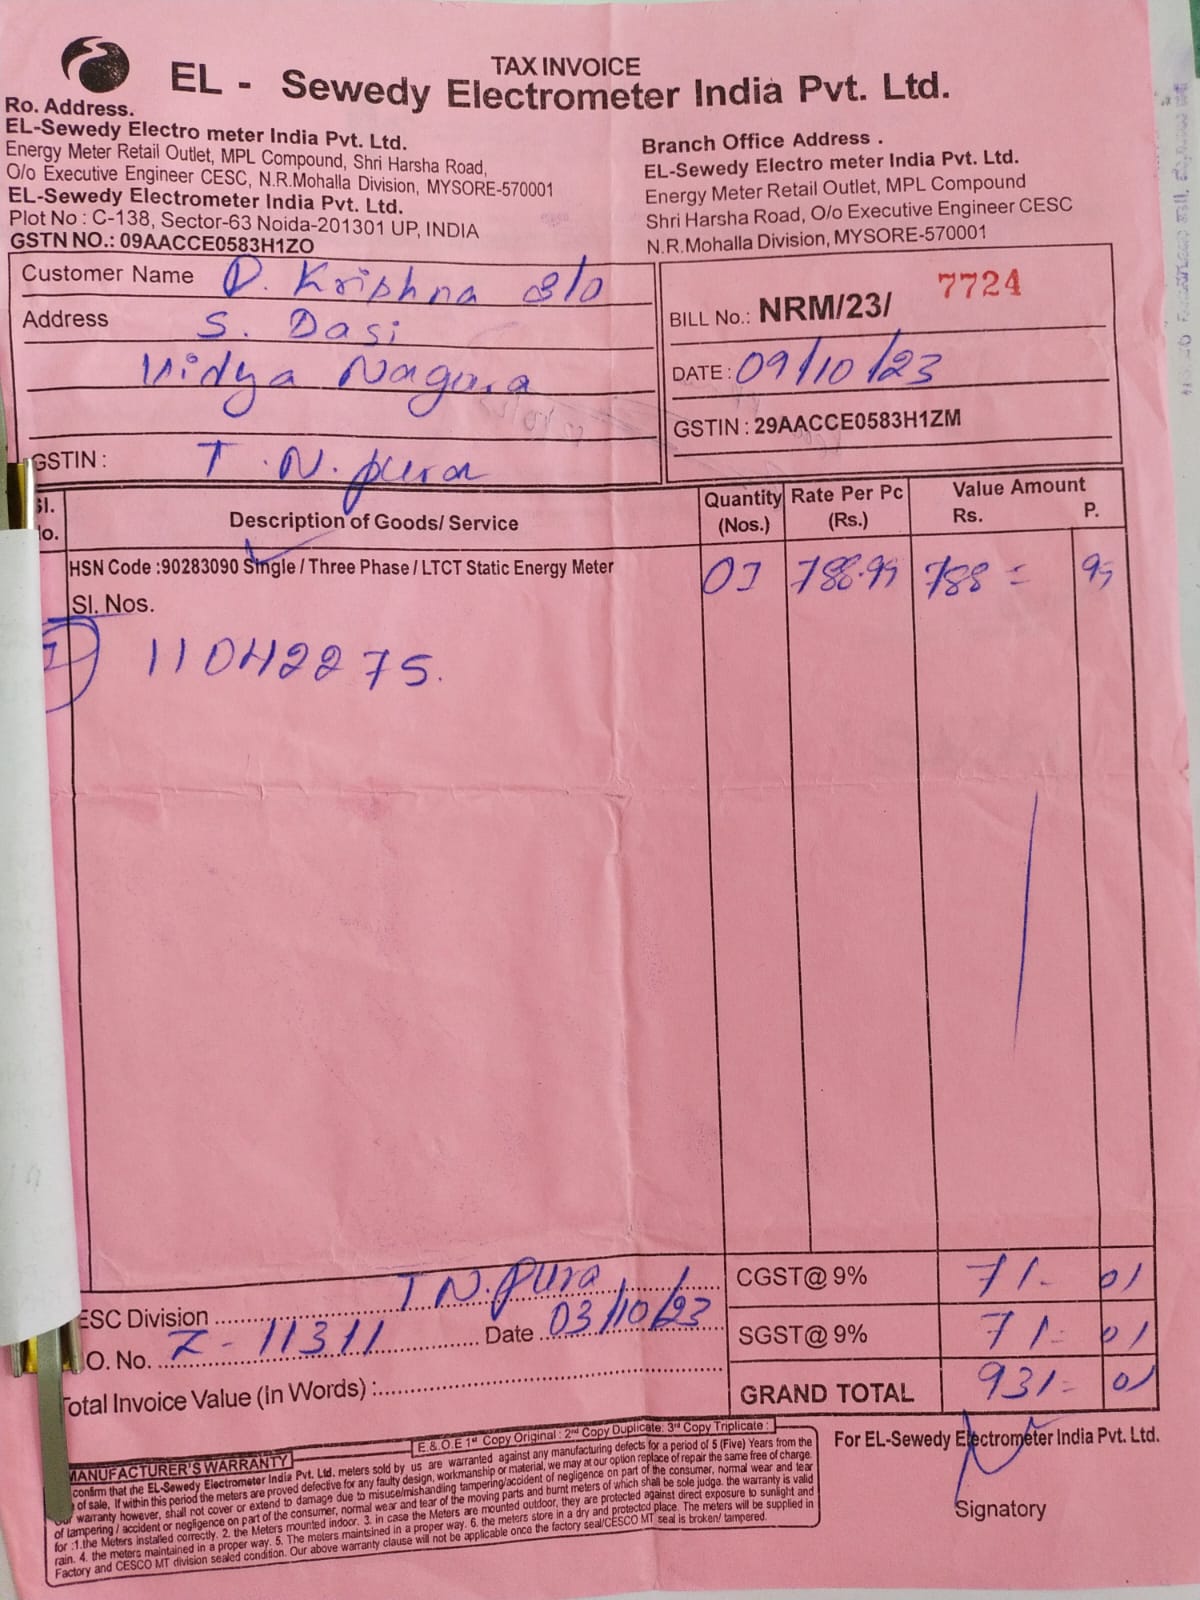 TAX INVOICE
EL - Sewedy Electrometer India Pvt. Ltd.
Ro. Address.
EL-Sewedy Electro meter India Pvt. Ltd.
Energy Meter Retail Outlet, MPL Compound, Shri Harsha Road,
O/o Executive Engineer CESC, N.R.Mohalla Division, MYSORE-570001
EL-Sewedy Electrometer India Pvt. Ltd.
Plot No : C-138, Sector-63 Noida-201301 UP, INDIA
GSTN NO.: 09AACCE0583H1ZO
Branch Office Address .
EL-Sewedy Electro meter India Pvt. Ltd.
Energy Meter Retail Outlet, MPL Compound
Shri Harsha Road, O/o Executive Engineer CESC
N.R.Mohalla Division, MYSORE-570001
Customer Name D. Krishna S/o
Address S. Dasi
Vidya Nagara
GSTIN : T.N.pura
BILL No.: NRM/23/ 7724
DATE : 09/10/23
GSTIN : 29AACCE0583H1ZM
Sl. No. Description of Goods/ Service Quantity (Nos.) Rate Per Pc (Rs.) Value Amount Rs. P.
HSN Code :90283090 Single / Three Phase / LTCT Static Energy Meter 01 788.99 788 = 99
Sl. Nos.
1 11042275.
ESC Division T N. Pura
O. No. Z-11311 Date 03/10/23
Total Invoice Value (In Words) :
CGST@ 9% 71- 01
SGST@ 9% 71= 01
GRAND TOTAL 931= 01
E.& O.E 1st Copy Original : 2nd Copy Duplicate: 3rd Copy Triplicate :
MANUFACTURER'S WARRANTY
confirm that the EL-Sewedy Electrometer India Pvt. Ltd. meters sold by us are warranted against any manufacturing defects for a period of 5 (Five) Years from the
of sale. If within this period the meters are proved defective for any faulty design, workmanship or material, we may at our option replace of repair the same free of charge.
Our warranty however, shall not cover or extend to damage due to misuse/mishandling tampering/accident of negligence on part of the consumer, normal wear and tear
of tampering / accident or negligence on part of the consumer, normal wear and tear of the moving parts and burnt meters of which shall be sole judge. the warranty is valid
for :1.the Meters installed correctly. 2. the Meters mounted indoor. 3. in case the Meters are mounted outdoor, they are protected against direct exposure to sunlight and
rain. 4. the meters maintained in a proper way. 5. The meters maintsined in a proper way. 6. the meters store in a dry and protected place. The meters will be supplied in
Factory and CESCO MT division sealed condition. Our above warranty clause will not be applicable once the factory seal/CESCO MT seal is broken/ tampered.
For EL-Sewedy Electrometer India Pvt. Ltd.
Signatory